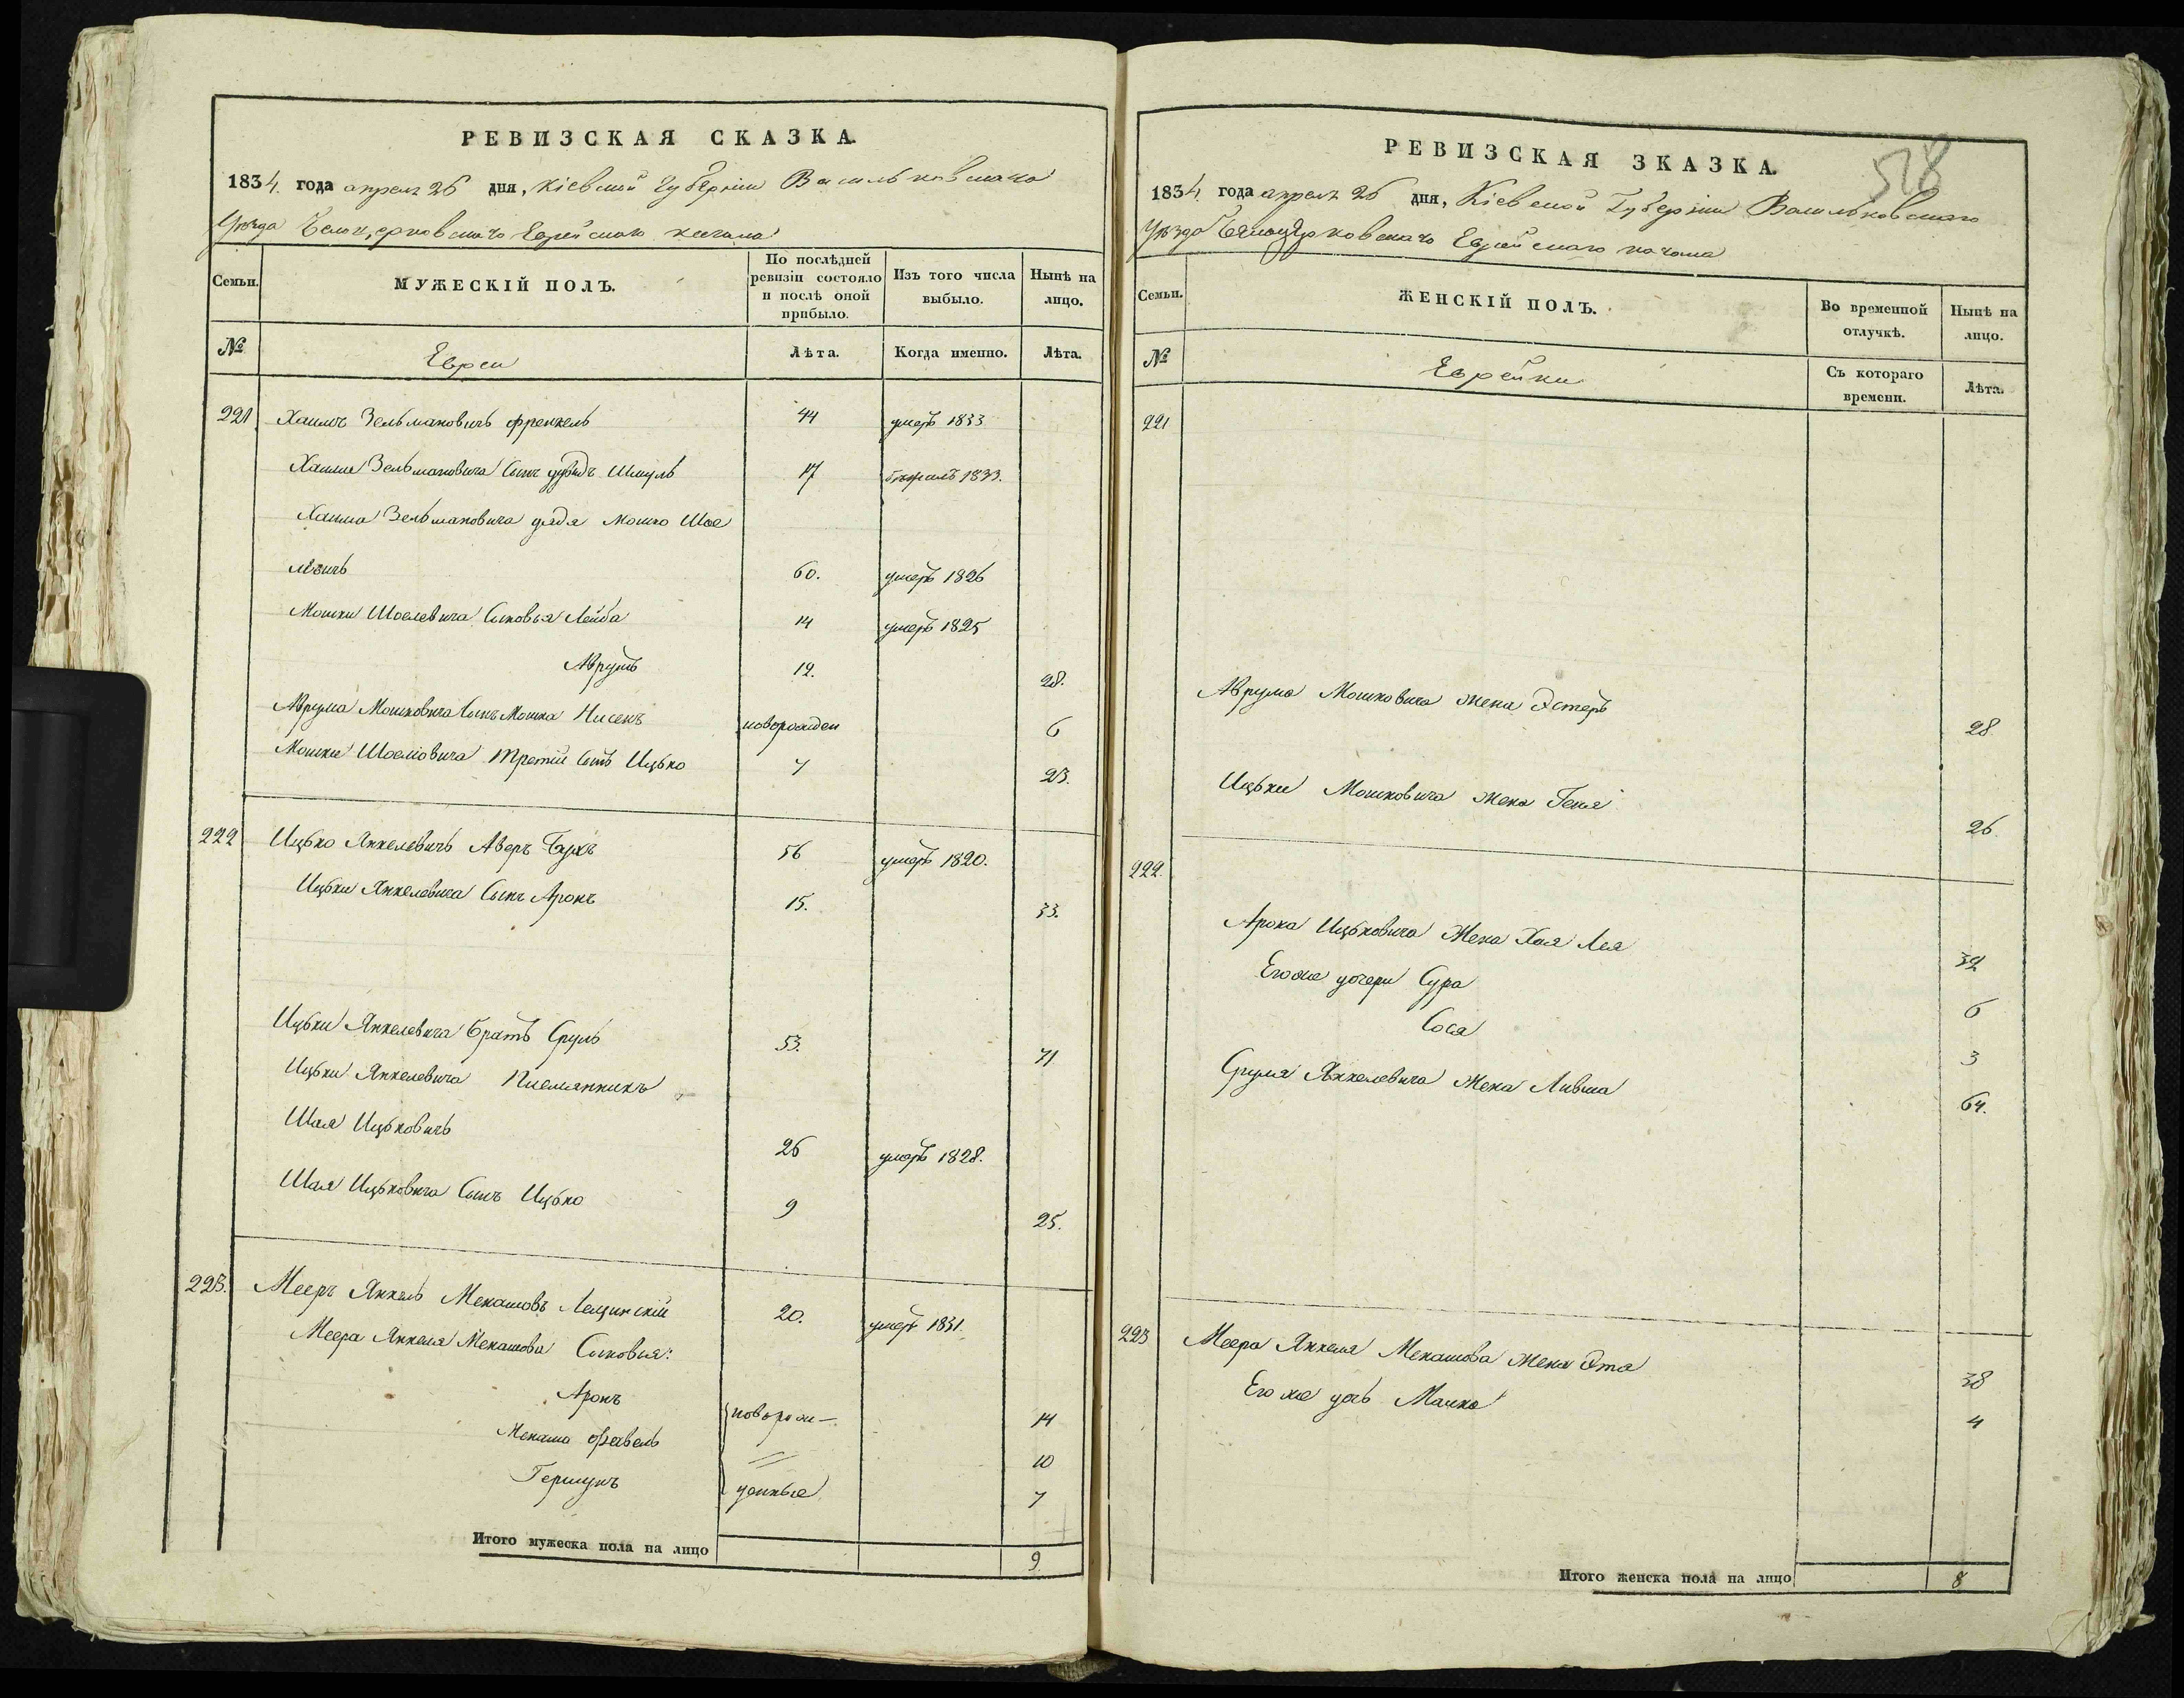 РЕВИЗСКАЯ СКАЗКА.
1834. года апреля 26 дня, Кіевской Губерніи Васильковскаго
Уѣзда Белоцерковскаго Еврейскаго кагала
Семьи. МУЖЕСКІЙ ПОЛЪ. По послѣдней ревизіи состояло и послѣ оной прибыло. Изъ того числа выбыло. Нынѣ на лицо.
№ Евреи Лѣта. Когда именно. Лѣта.
221 Хаимъ Зельмановичъ Френкель 44 умеръ 1833
Хаима Зельмановича Сынъ Шмуль 17 1833.
Хаима Зельмановича дядя Мошко Шое
левичъ 60. умеръ 1826
Мошки Шоелевича Сыновья Лейба 14 умеръ 1825
Аврумъ 12. 28.
Аврума Мошковича Сынъ Мошка Нисенъ новорожден 6
Мошки Шоеловича третій Сынъ Ицько 7 23.
222 Ицько Янкелевичъ Авербухъ 56 умеръ 1820.
Ицьки Янкелевича Сынъ Аронъ 15. 33.
Ицьки Янкелевича братъ Сруль 53. 71
Ицьки Янкелевича Племянникъ
Шая Ицьковичъ 26 умеръ 1828.
Шая Ицьковича Сынъ Ицько 9 25.
223. Мееръ Янкель Менашовъ Лещинскій 20. умеръ 1831.
Меера Янкеля Менашова Сыновья:
Аронъ новорож- 14
Менаша Файвель 〃 10
Гершунъ денные 7
Итого мужеска пола на лицо 9.
РЕВИЗСКАЯ ЗКАЗКА.
1834. года апреля 26 дня, Кіевской Губерніи Васильковскаго
Уѣзда Белоцерковскаго Еврейскаго кагала
Семьи. ЖЕНСКІЙ ПОЛЪ. Во временной отлучкѣ. Нынѣ на лицо.
№ Еврейки Съ котораго времени. Лѣта.
221
Аврума Мошковича жена Эстеръ 28
Ицьки Мошковича жена Геня 26
222.
Арона Ицьковича Жена Хая Лея 32
Его же дочери Сура 6
Сося 3
Сруля Янкелевича Жена Ливша 64.
223 Меера Янкеля Менашова жена Эта 38
Его же дочь Малка 4
Итого женска пола на лицо 8